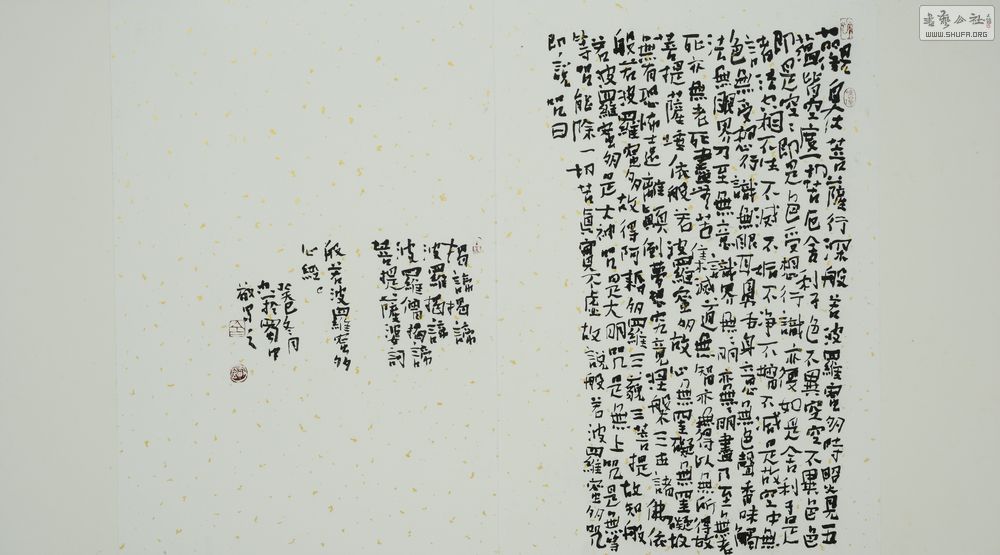 觀自在菩薩行深般若波羅蜜多時照見五
蘊皆空度一切苦厄舍利子色不異空空不異色色
即是空空即是色受想行識亦復如是舍利子是
諸法空相不生不滅不垢不淨不增不減是故空中無
色無受想行識無眼耳鼻舌身意無色聲香味觸
法無眼界乃至無意識界無無明亦無無明盡乃至無老
死亦無老死盡無苦集滅道無智亦無得以無所得故
菩提薩埵依般若波羅蜜多故心無罣礙無罣礙故
無有恐怖遠離顛倒夢想究竟涅槃三世諸佛依
般若波羅蜜多故得阿耨多羅三藐三菩提故知般
若波羅蜜多是大神咒是大明咒是無上咒是無等
等咒能除一切苦真實不虛故說般若波羅蜜多咒
即說咒曰
揭諦揭諦
波羅揭諦
波羅僧揭諦
菩提薩婆訶
般若波羅蜜多
心經
癸巳冬月
於蜀中
敬寫之
書藝公社
WWW.SHUFA.ORG